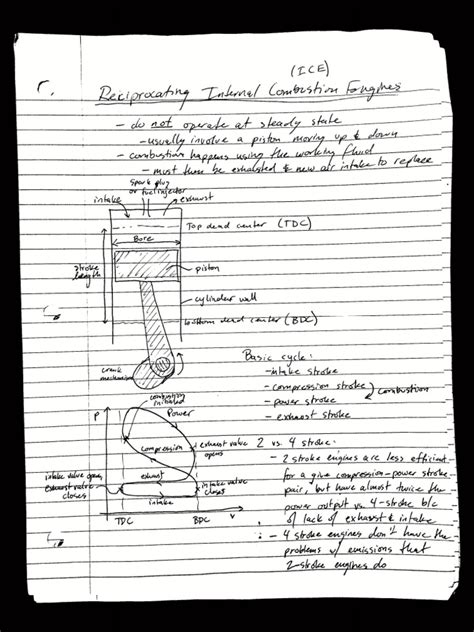 (ICE)
Reciprocating Internal Combustion Engines
- do not operate at steady state
- usually involve a piston moving up & down
- combustion happens using the working fluid
- must then be exhausted & new air intake to replace
spark plug
or fuel injector
intake
exhaust
Top dead center (TDC)
Bore
stroke
length
piston
cylinder wall
bottom dead center (BDC)
crank
mechanism
Basic cycle:
- intake stroke
- compression stroke
combustion
- power stroke
- exhaust stroke
combustion
initiated
P
Power
compression
exhaust valve
opens
intake valve opens
exhaust valve
closes
exhaust
intake
intake valve
closes
TDC
BDC
v
2 vs. 4 stroke:
- 2 stroke engines are less efficient
for a give compression-power stroke
pair, but have almost twice the
power output vs 4-stroke b/c
of lack of exhaust & intake
- 4 stroke engines don't have the
problems w/ emissions that
2-stroke engines do